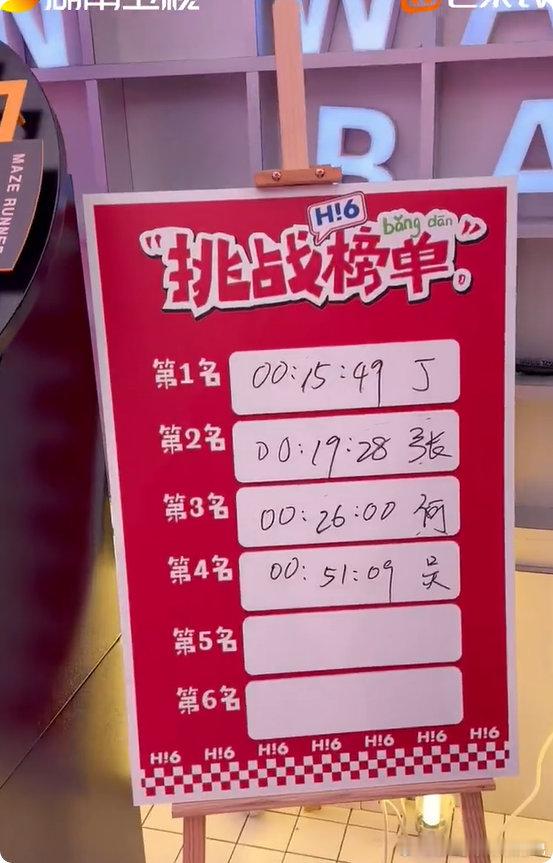 湖南卫视
W
BA
7
MAZE RUNNER
H!6
bǎng dān
“挑战榜单。”
第1名 00:15:49 丁
第2名 00:19:28 张
第3名 00:26:00 何
第4名 00:51:09 吴
第5名
第6名
H!6 H!6 H!6 H!6 H!6 H!6